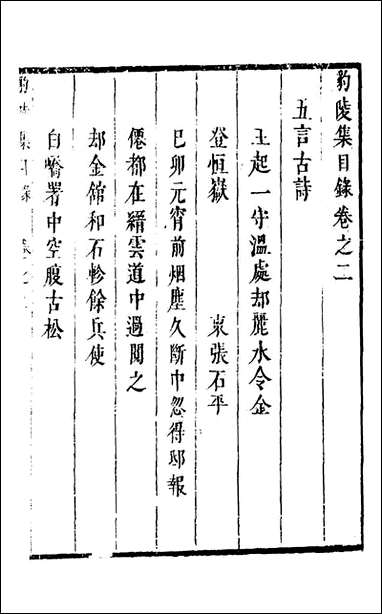 豹陵集目錄卷之二
五言古詩
王起一守溫處却麗水令金
登恒嶽　柬張石平
己卯元宵前烟塵久斷中忽得邸報
僊都在縉雲道中過聞之
却金舘和石軫餘兵使
白嶠署中空腹古松
集目錄